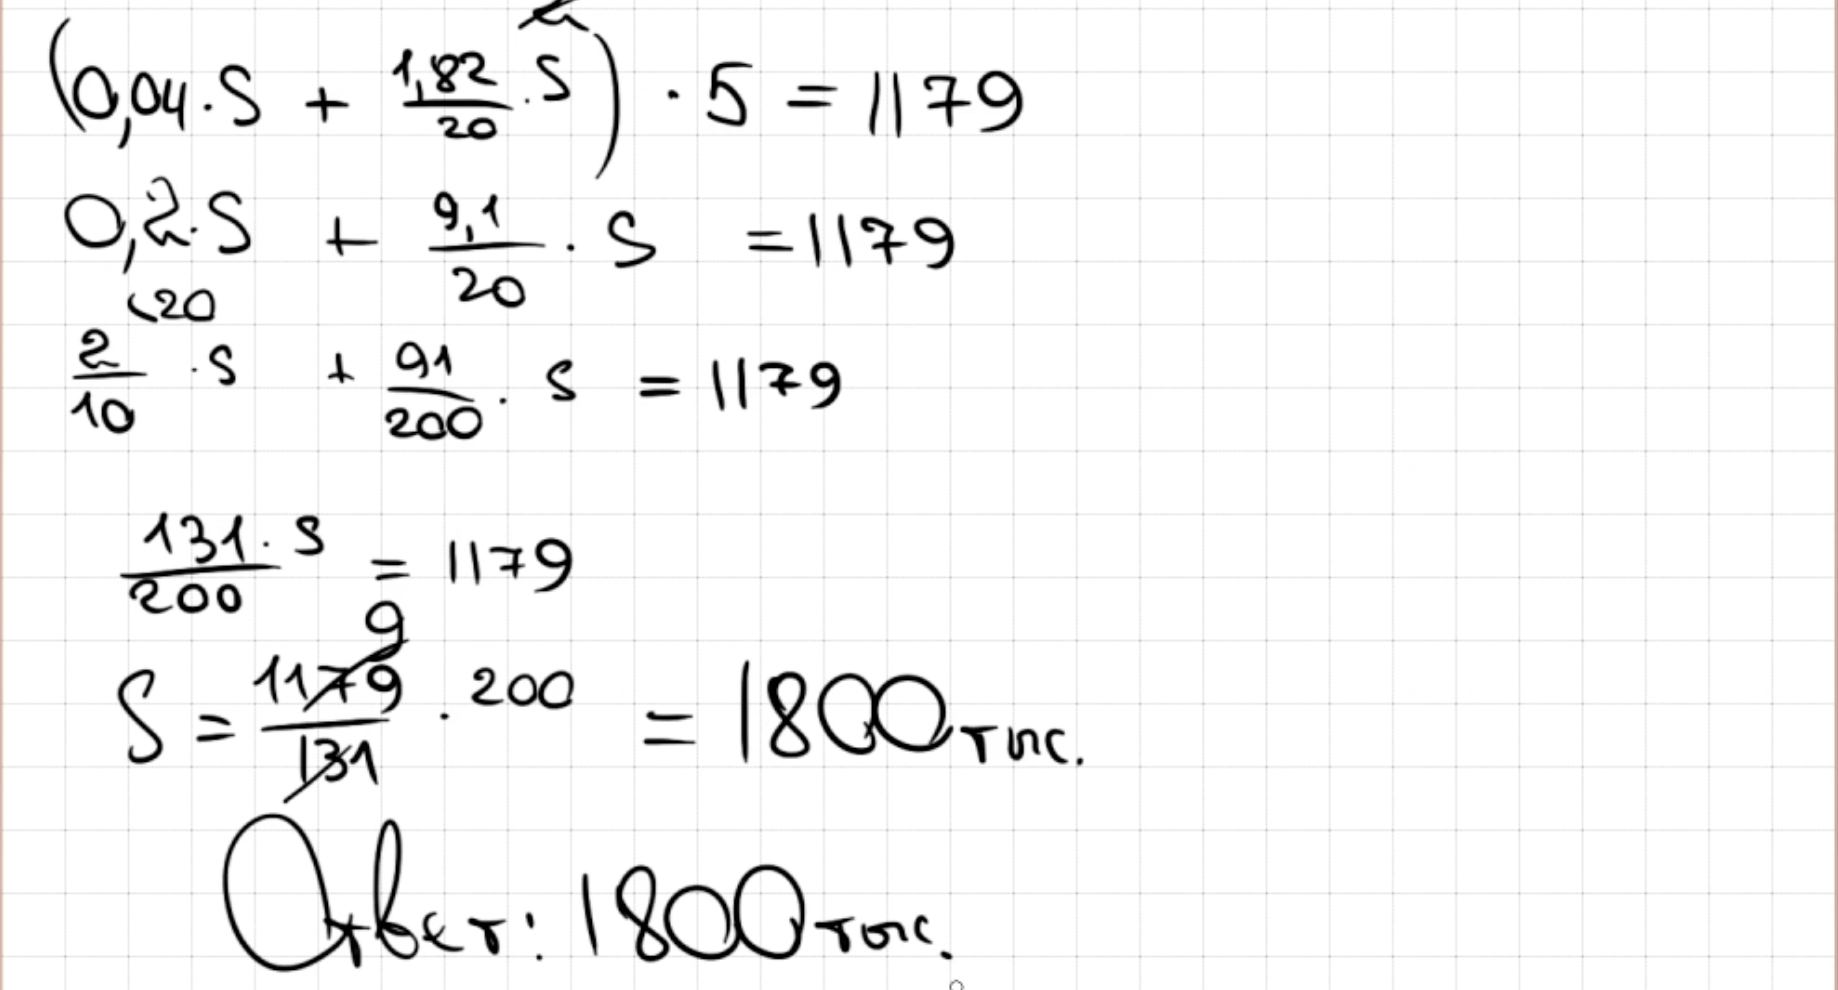 (0,04·S + 1,82/20·S)·5 = 1179
0,2·S + 9,1/20·S = 1179
20
2/10·S + 91/200·S = 1179
131·S/200 = 1179
9
S = 1179/131·200 = 1800 тыс.
Ответ: 1800 тыс.